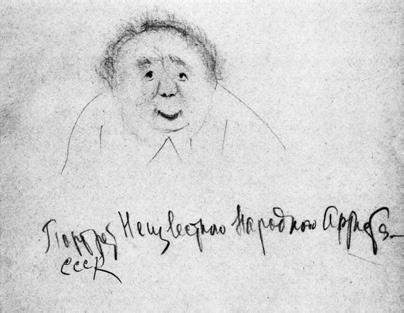 Портрет Неизвестного Народного Артиста
СССР